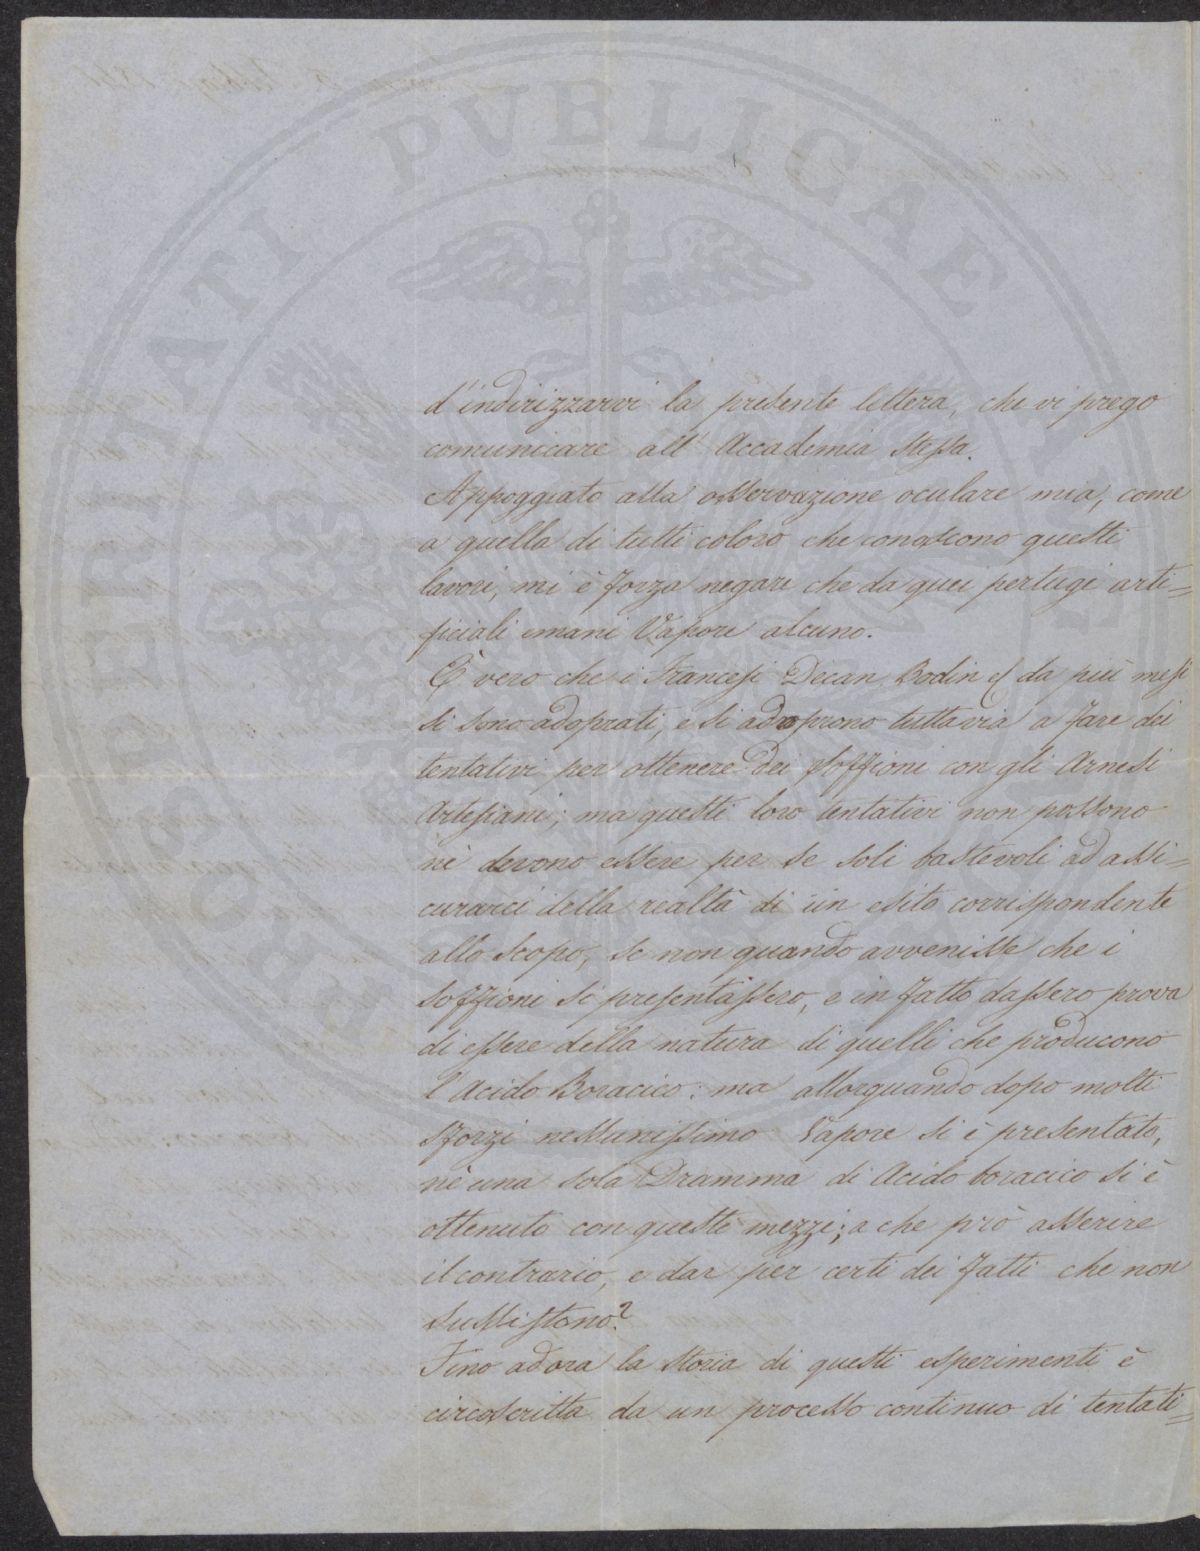 d'indirizzarvi la presente lettera, che vi prego
comunicare all'Accademia stessa.
Appoggiato alla osservazione oculare mia, come
a quella di tutti coloro che conoscono questi
lavori, mi è forza negare che da quei pertugi arti=
ficiali emani Vapore alcuno.
È vero che i Francesi Decan Bodin e da più mesi
si sono adoprati, e si adoprono tuttavia a fare dei
tentativi per ottenere dei soffioni con gli Arnesi
Artesiani; ma questi loro tentativi non possono
nè devono essere per se soli bastevoli ad assi=
curarci della realtà di un esito corrispondente
allo scopo, se non quando avvenisse che i
soffioni si presentassero, e in fatto dassero prova
di essere della natura di quelli che producono
l'Acido Boracico: ma allorquando dopo molti
sforzi nessunissimo Vapore si è presentato,
nè una sola Dramma di Acido boracico si è
ottenuto con questi mezzi; a che prò asserire
il contrario, e dar per certi dei fatti che non
sussistono?
Fino ad ora la storia di questi esperimenti è
circoscritta da un processo continuo di tentati=
PROSPERITATI PVBLICAE